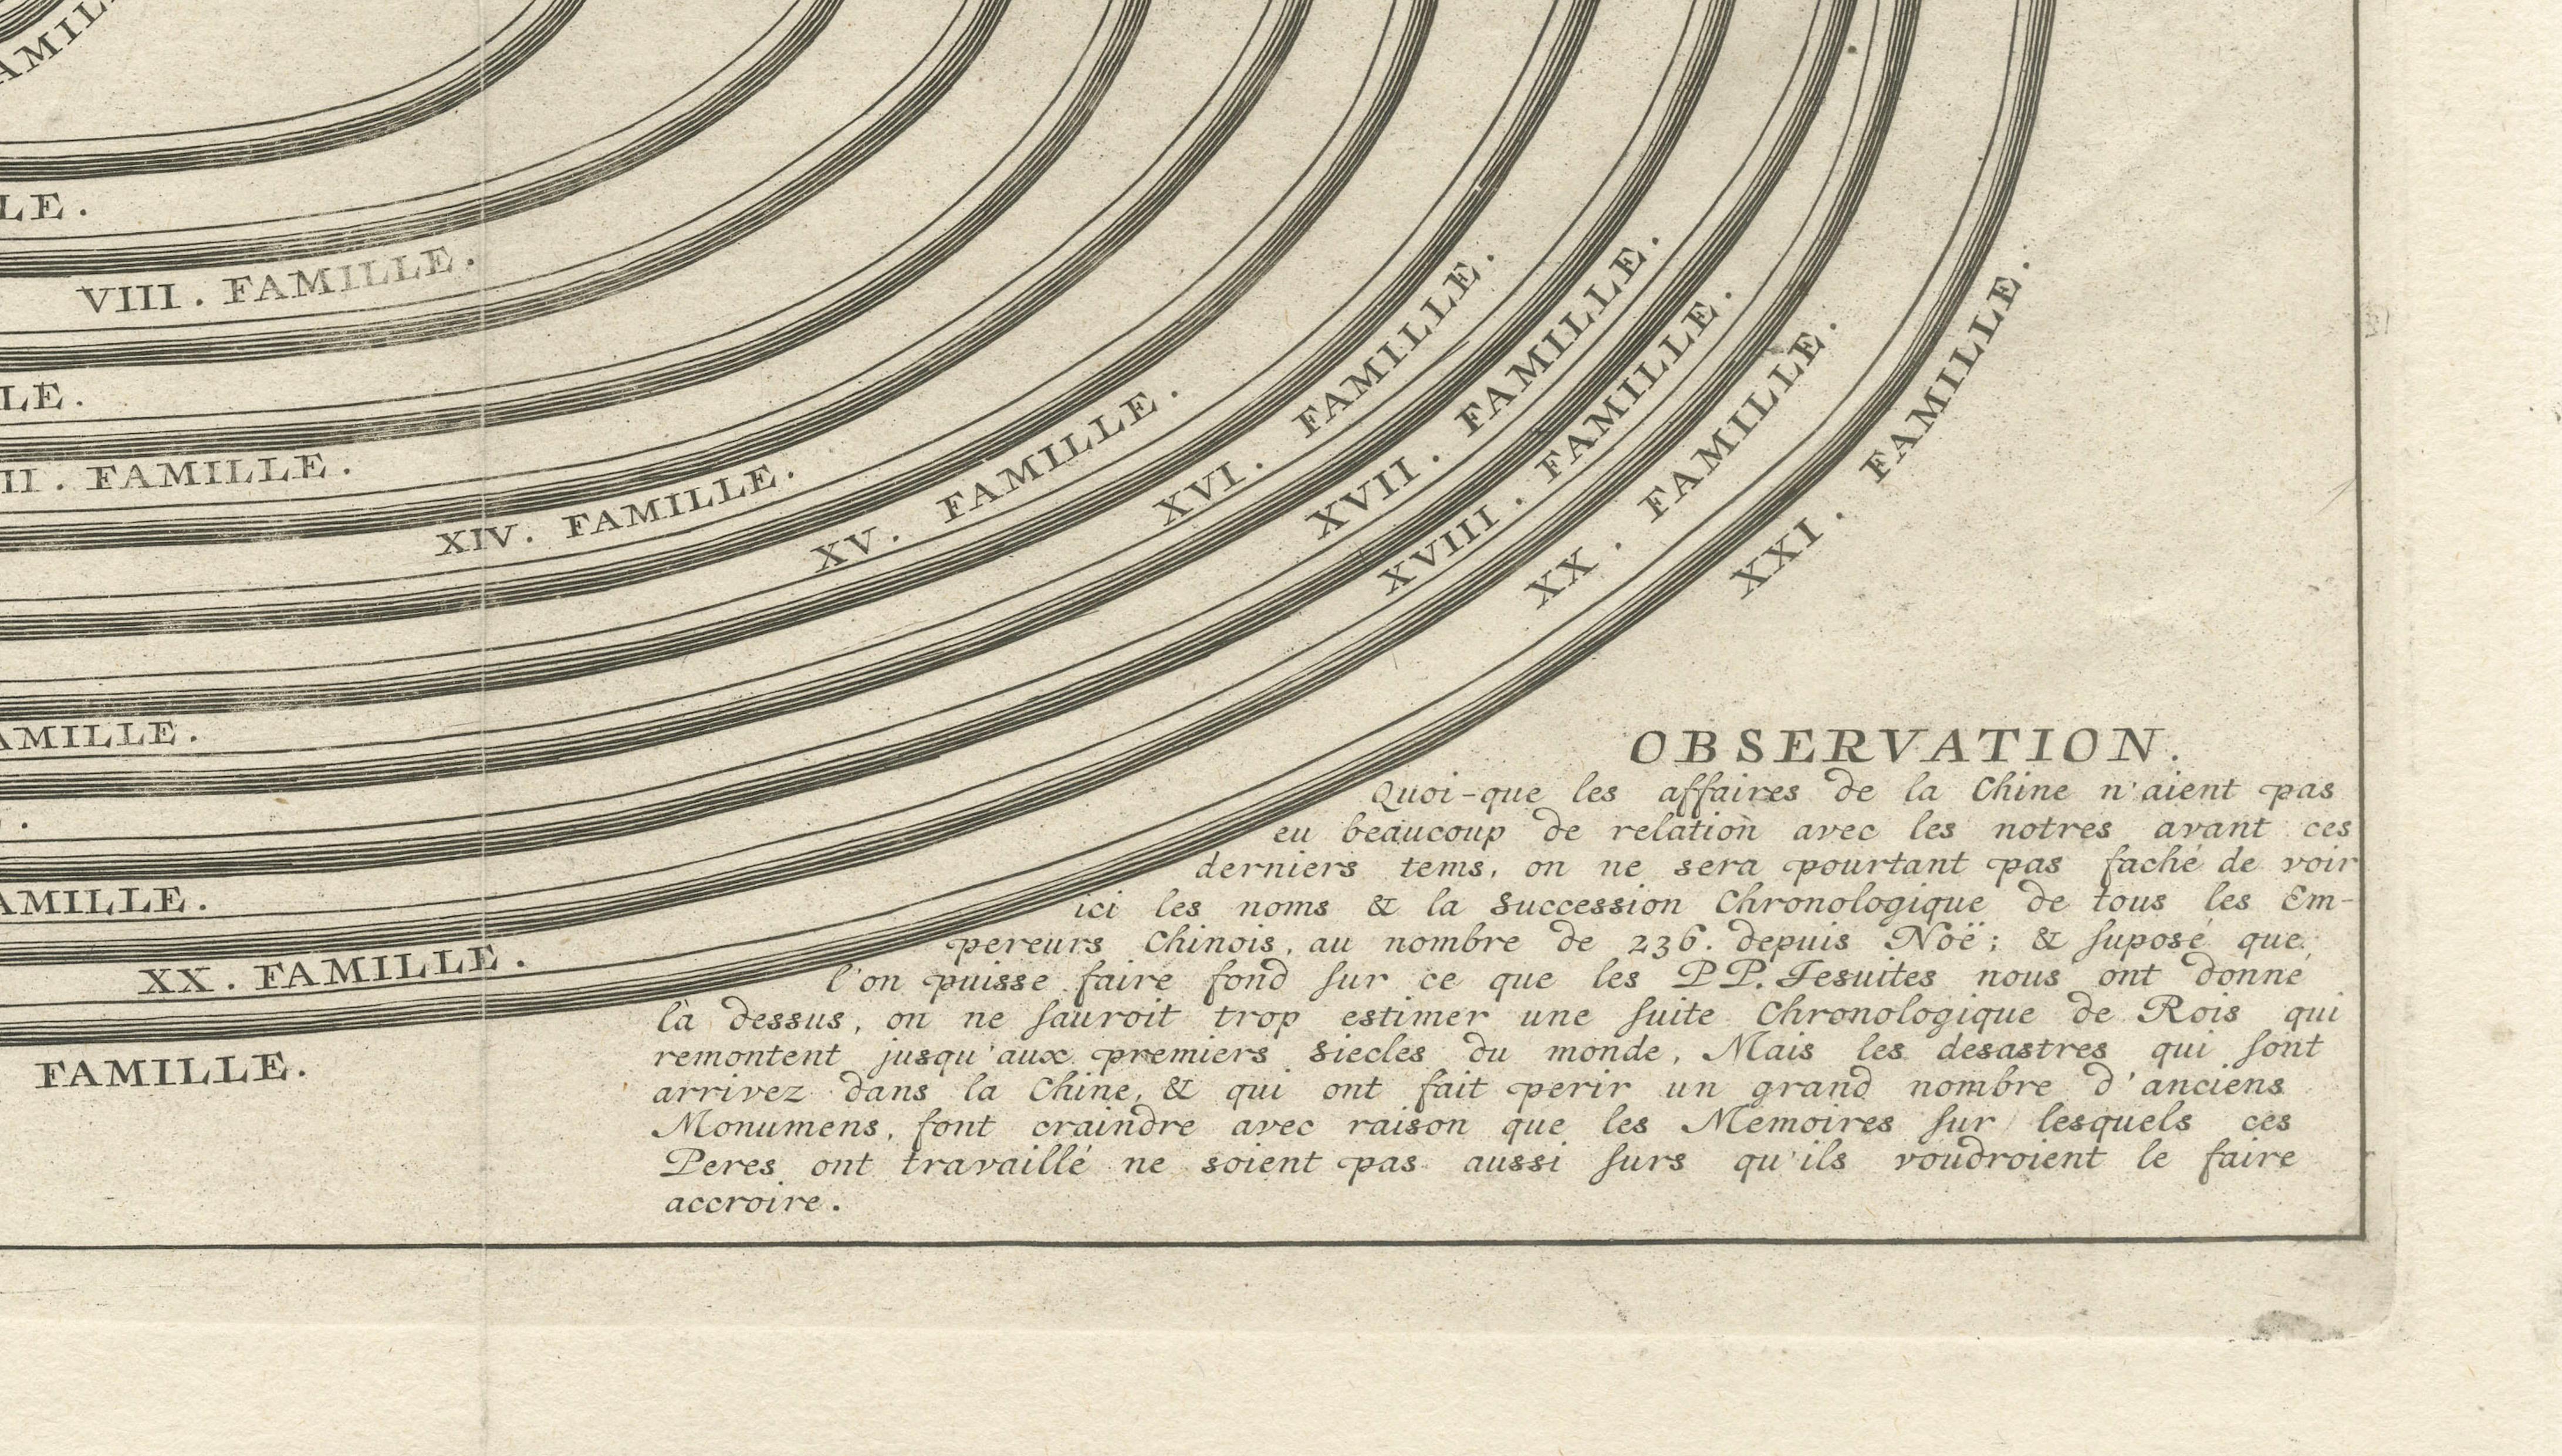 AMILL
LE.
VIII. FAMILLE.
LE.
II. FAMILLE.
XIV. FAMILLE.
XV. FAMILLE.
XVI. FAMILLE.
XVII. FAMILLE.
XVIII. FAMILLE.
XX. FAMILLE.
XXI. FAMILLE.
AMILLE.
AMILLE.
XX. FAMILLE.
FAMILLE.
OBSERVATION.
Quoi-que les affaires de la Chine n'aient pas
eu beaucoup de relation avec les notres avant ces
derniers tems, on ne sera pourtant pas faché de voir
ici les noms & la Succession Chronologique de tous les Em-
pereurs Chinois, au nombre de 236. depuis Noë; & suposé que
l'on puisse faire fond sur ce que les PP. Jesuites nous ont donné
là dessus, on ne sauroit trop estimer une suite Chronologique de Rois qui
remontent jusqu'aux premiers siecles du monde, Mais les desastres qui sont
arrivez dans la Chine, & qui ont fait perir un grand nombre d'anciens
Monumens, font craindre avec raison que les Memoires sur lesquels ces
Peres ont travaillé ne soient pas aussi surs qu'ils voudroient le faire
accroire.